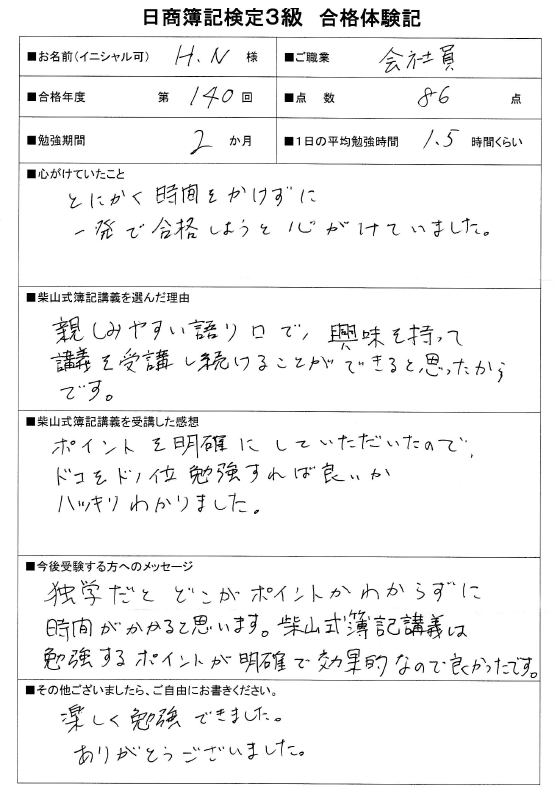 日商簿記検定3級 合格体験記
■お名前(イニシャル可) H.N 様 ■ご職業 会社員
■合格年度 第 140 回 ■点 数 86 点
■勉強期間 2 か月 ■1日の平均勉強時間 1.5 時間くらい
■心がけていたこと
とにかく時間をかけずに
一発で合格しようと心がけていました。
■柴山式簿記講義を選んだ理由
親しみやすい語り口で、興味を持って
講義を受講し続けることができると思ったから
です。
■柴山式簿記講義を受講した感想
ポイントを明確にしていただいたので、
ドコをドノ位勉強すれば良いか
ハッキリわかりました。
■今後受験する方へのメッセージ
独学だとどこがポイントかわからずに
時間がかかると思います。柴山式簿記講義は
勉強するポイントが明確で効果的なので良かったです。
■その他ございましたら、ご自由にお書きください。
楽しく勉強できました。
ありがとうございました。